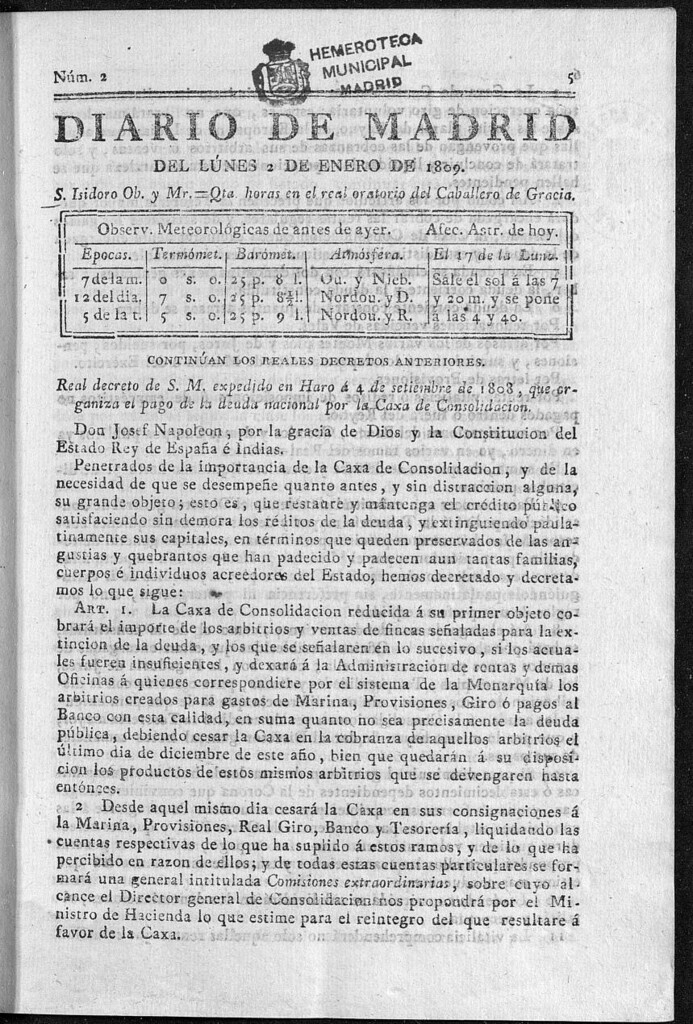 Núm. 2
5
HEMEROTECA
MUNICIPAL
MADRID
DIARIO DE MADRID
DEL LÚNES 2 DE ENERO DE 1809.
S. Isidoro Ob. y Mr.=Qta horas en el real oratorio del Caballero de Gracia.
Observ. Meteorológicas de antes de ayer. Afec. Astr. de hoy.
Epocas. Termómet. Barómet. Atmósfera. El 17 de la Luna.
7 de la m. 0 s. 0. 25 p. 8 l. Ou. y Nieb. Sale el sol á las 7
12 del dia. 7 s. 0. 25 p. 8½ l. Nordou. y D. y 20 m. y se pone
5 de la t. 5 s. 0. 25 p. 9 l. Nordou. y R. á las 4 y 40.
CONTINÚAN LOS REALES DECRETOS ANTERIORES.
Real decreto de S. M. expedido en Haro á 4 de setiembre de 1808, que or-
ganiza el pago de la deuda nacional por la Caxa de Consolidacion.
Don Josef Napoleon, por la gracia de Dios y la Constitucion del
Estado Rey de España é Indias.
Penetrados de la importancia de la Caxa de Consolidacion, y de la
necesidad de que se desempeñe quanto antes, y sin distraccion alguna,
su grande objeto; esto es, que restaure y mantenga el crédito público
satisfaciendo sin demora los réditos de la deuda, y extinguiendo paula-
tinamente sus capitales, en términos que queden preservados de las an-
gustias y quebrantos que han padecido y padecen aun tantas familias,
cuerpos é individuos acreedores del Estado, hemos decretado y decreta-
mos lo que sigue:
ART. 1. La Caxa de Consolidacion reducida á su primer objeto co-
brará el importe de los arbitrios y ventas de fincas señaladas para la ex-
tincion de la deuda, y los que se señalaren en lo sucesivo, si los actua-
les fueren insuficientes, y dexará á la Administracion de rentas y demas
Oficinas á quienes correspondiere por el sistema de la Monarquía los
arbitrios creados para gastos de Marina, Provisiones, Giro ó pagos al
Banco con esta calidad, en suma quanto no sea precisamente la deuda
pública, debiendo cesar la Caxa en la cobranza de aquellos arbitrios el
último dia de diciembre de este año, bien que quedarán á su disposi-
cion los productos de estos mismos arbitrios que se devengaren hasta
entónces.
2 Desde aquel mismo dia cesará la Caxa en sus consignaciones á
la Marina, Provisiones, Real Giro, Banco y Tesorería, liquidando las
cuentas respectivas de lo que ha suplido á estos ramos, y de lo que ha
percibido en razon de ellos; y de todas estas cuentas particulares se for-
mará una general intitulada Comisiones extraordinarias, sobre cuyo al-
cance el Director general de Consolidacion nos propondrá por el Mi-
nistro de Hacienda lo que estime para el reintegro del que resultare á
favor de la Caxa.